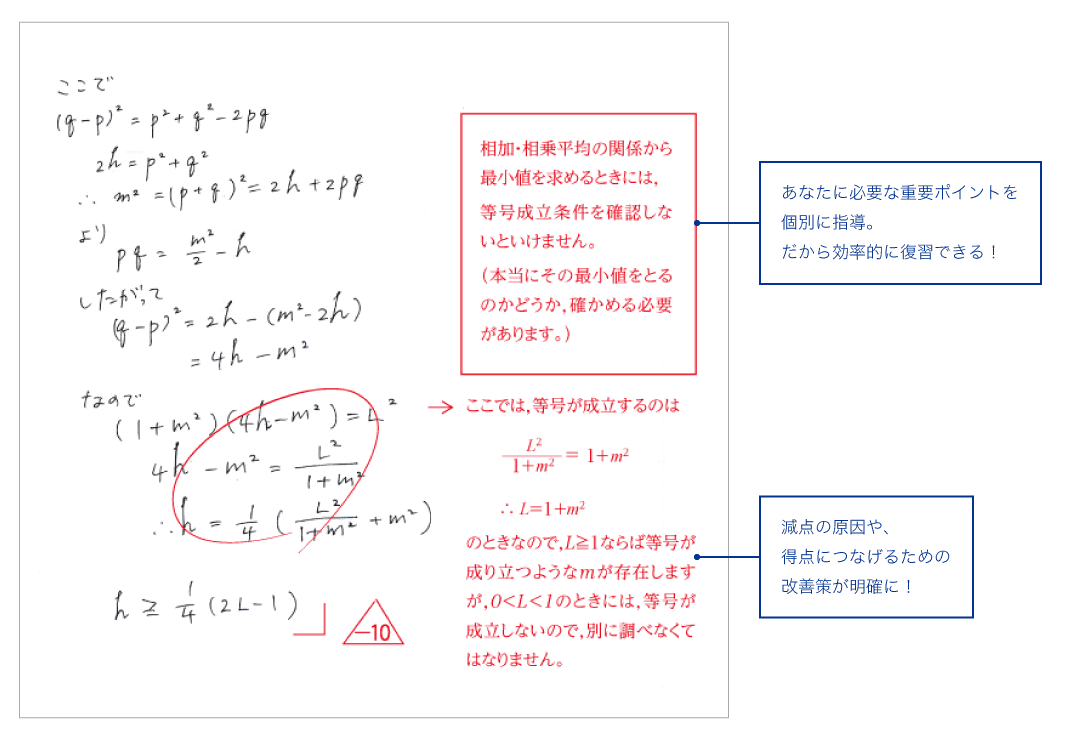 ここで
(q-p)² = p² + q² - 2pq
2h = p² + q²
∴ m² = (p+q)² = 2h + 2pq
より
pq = m²/2 - h
したがって
(q-p)² = 2h - (m² - 2h)
= 4h - m²
なので
(1+m²)(4h-m²) = L²
4h - m² = L²/(1+m²)
∴ h = 1/4 (L²/(1+m²) + m²)
h ≧ 1/4 (2L-1)
-10
相加・相乗平均の関係から
最小値を求めるときには,
等号成立条件を確認しな
いといけません。
(本当にその最小値をとる
のかどうか,確かめる必要
があります。)
→ ここでは,等号が成立するのは
L²/(1+m²) = 1+m²
∴ L=1+m²
のときなので,L≧1ならば等号が
成り立つようなmが存在します
が,0<L<1のときには,等号が
成立しないので,別に調べなくて
はなりません。
あなたに必要な重要ポイントを
個別に指導。
だから効率的に復習できる!
減点の原因や、
得点につなげるための
改善策が明確に!